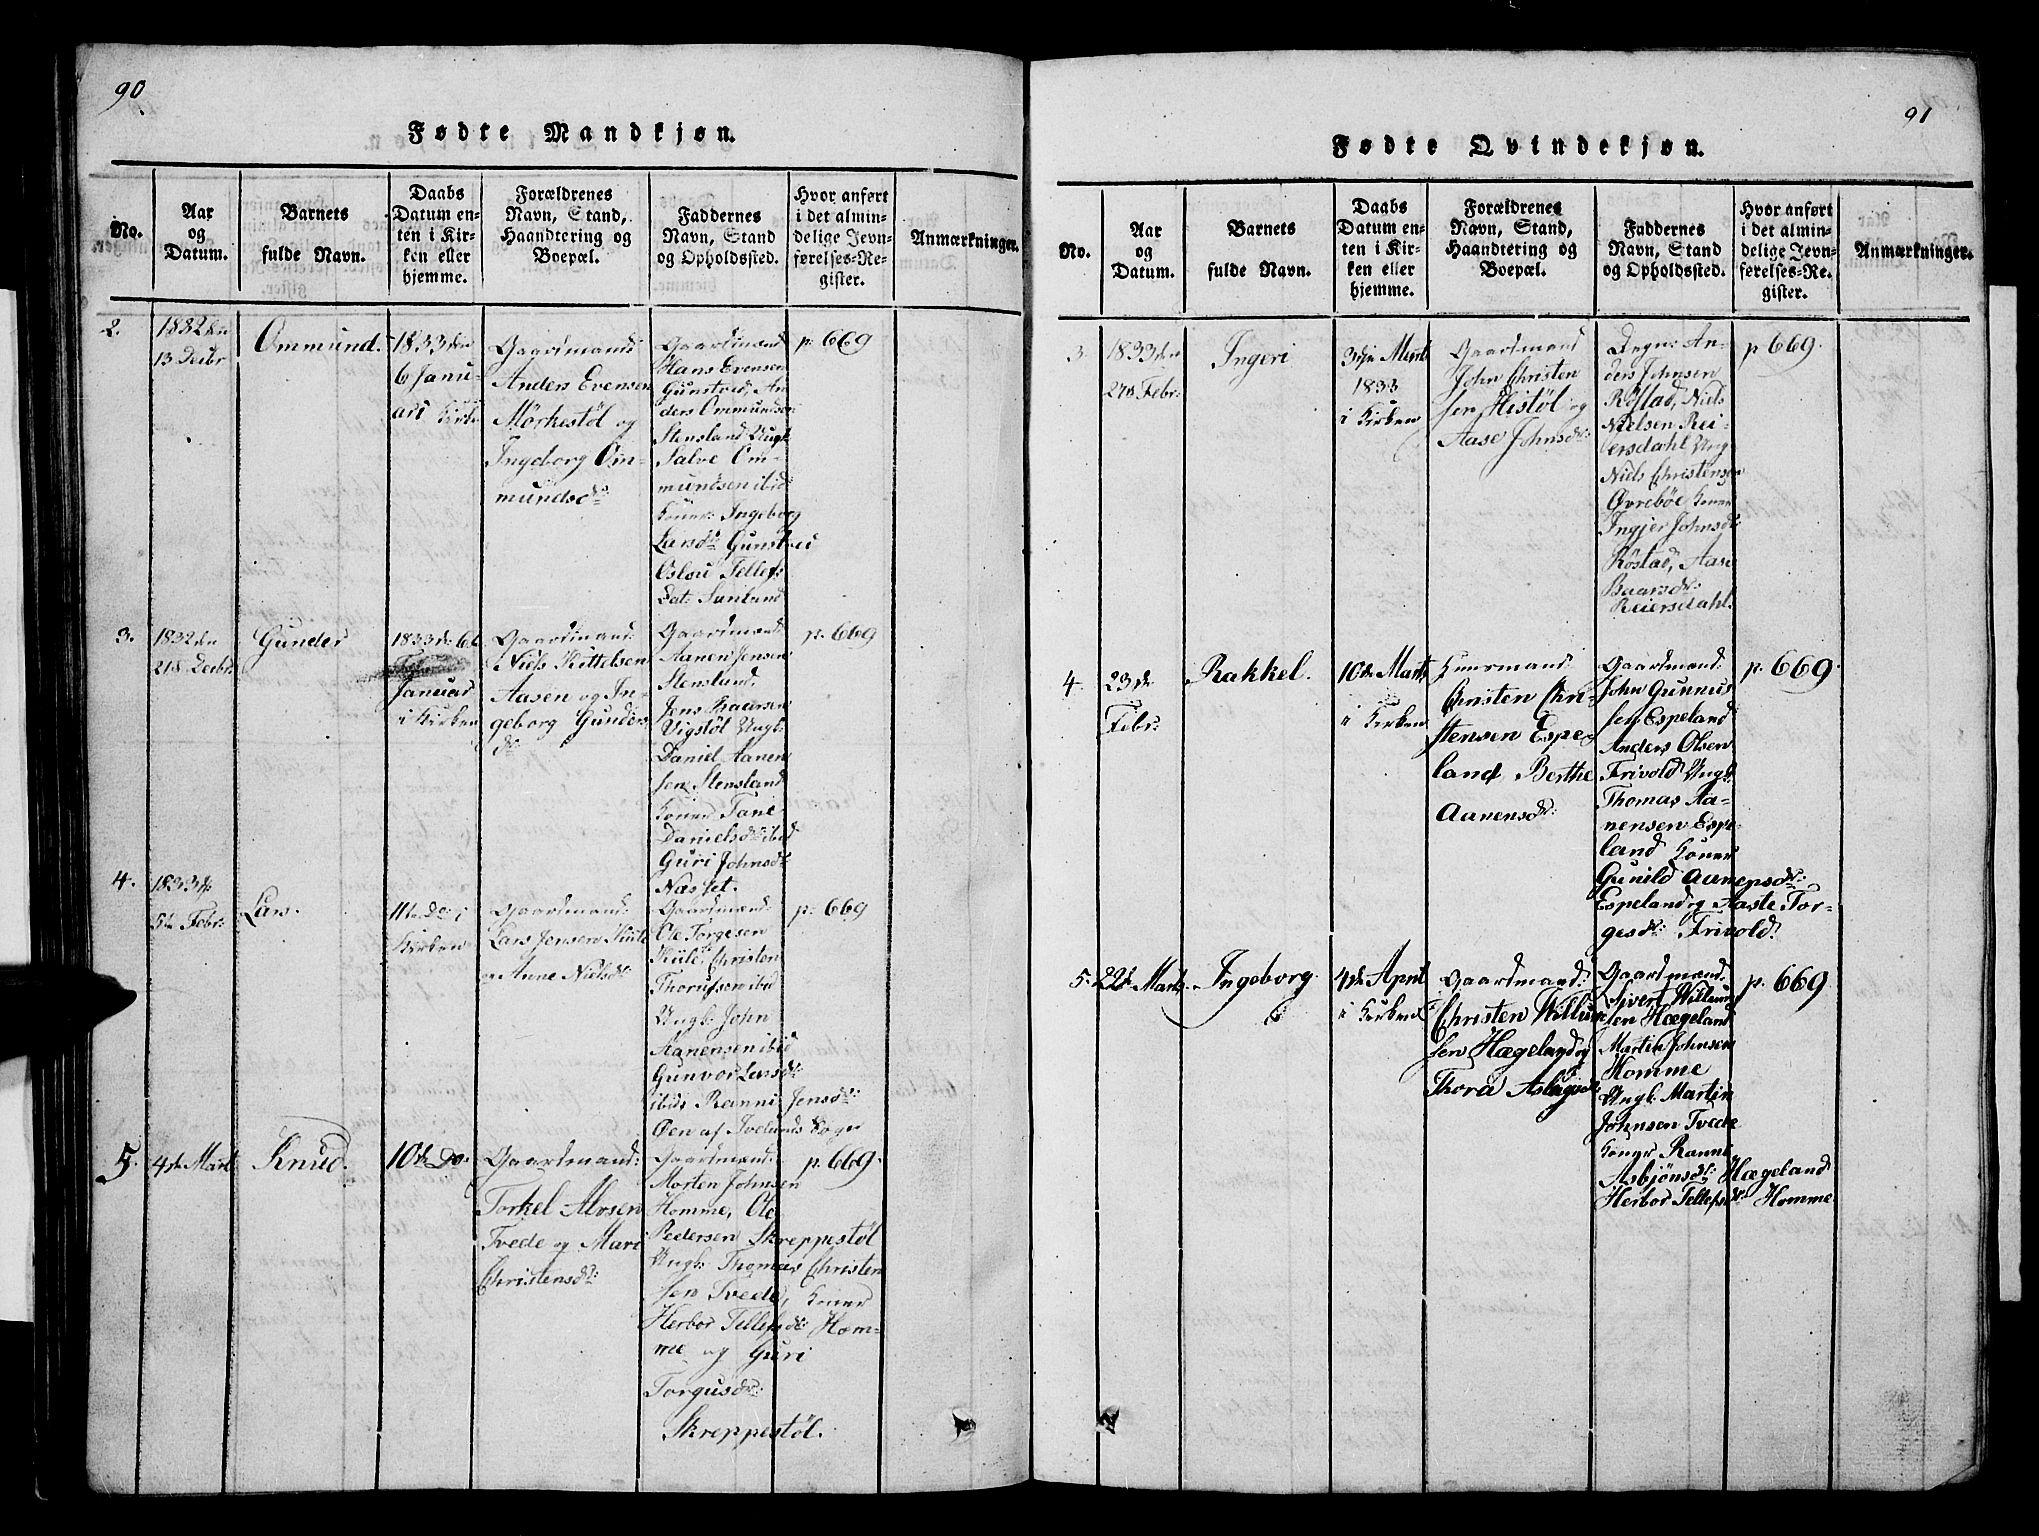 90
Fødte Mandkjøn.
No.
Aar
og
Datum.
Barnets
fulde Navn.
Daabs
Datum en-
ten i Kir-
ken eller
hjemme.
Forældrenes
Navn, Stand,
Haandtering og
Boepæl.
Faddernes
Navn, Stand
og Opholdssted.
Hvor anført
i det almin-
delige Jevn-
førelses-Re-
gister.
Anmærkninger.
2.
1832 den
13 Decbr
Ommund.
1833 den
6 Janu-
ari Kirke
Gaardmand
Anders Evensen
Mørkestøl og
Ingeborg Om-
mundsdr:
Gaardmænd
Hans Evensen
Gunsteid, An
ders Ommundsen
Stensland Ungk:
Salve Om-
mundsen ibid
Koner: Ingeborg
Larsdr: Gunsteid
Oslou Tellefs
Dat: Sunland
p: 669
3.
1832 den
21d Decbr
Gunder
1833 d: 6t
Januar
i Kirken
Gaardmand:
Niels Kittelsen
Aasen og In-
geborg Gunders
dr:
Gaardmænd:
Aanen Jensen
Stensland.
Jens Baarsen
Vigstøl Ungk:
Daniel Aanen
sen Stensland
Koner Tane
Danielsdr: ibid
Guri Johnsdr:
Næsset.
p: 669
4.
1833 d:
5te Febr:
Lars.
11te Do: i
Kirken
Gaardmand:
Lars Jensen Kiile
og Anne Nielsdr:
Gaardmænd:
Ole Torgesen
Kiile, Christen
Thorufsen ibid
Ungk: John
Aanensen ibid
Gunvor Larsdr:
ibid: Ranni Jensdr:
Øen af Ivelands Sogn
p: 669
5.
4de Marts
Knud.
10de Do.
Gaardmand:
Torkel Alvsen
Tvede og Mari
Christensdr:
Gaardmænd:
Morten Johnsen
Homme, Ole
Pedersen Skreppestøl
Ungk: Thomas Christen
sen Tvede, Koner
Herbor Tellefsdr: Hom-
me og Guri
Torgusdr:
Skreppestøl.
p: 669.
91
Fødte Qvindekjøn.
No.
Aar
og
Datum.
Barnets
fulde Navn.
Daabs
Datum en-
ten i Kir-
ken eller
hjemme.
Forældrenes
Navn, Stand,
Haandtering og
Boepæl.
Faddernes
Navn, Stand
og Opholdssted.
Hvor anført
i det almin-
delige Jevn-
førelses-Re-
gister.
Anmærkninger.
3.
1833 den
27d Febr:
Ingeri
3die Marts
1833
i Kirken
Gaardmand
John Christen
sen Histøl og
Aase Johnsdr:
An-
ders Johnsen
Røstad, Niels
Nielsen Rei-
ersdahl Ung
Niels Christensen
Øvrebøe Koner
Ingjer Johnsdr:
Røstad, Aase
Baarsdr:
Reiersdahl.
p 669.
4.
23de
Febr:
Rakkel.
10de Marts
i Kirken
Christen Chri-
stensen Espe
land Berthe
Aanensdr:
Gaardmænd:
John Gunnus
sen Espeland
Anders Olsen
Frivold Ungk
Thomas Aa-
nensen Espe-
land Koner
Gunild Aanensdr:
Espeland og Aaste Tor-
gesdr: Frivold.
p: 669.
5.
22de Marts.
Ingeborg.
4de April
i Kirken
Gaardmand:
Christen Willum
sen Hægeland og
Thora Aslagsdr:
Gaardmænd:
Sivert Willum
sen Hægeland
Martin Johnsen
Homme
Ungk: Martin
Johnsen Tvede
Koner Ranni
Asbjønsdr: Hægeland
Herbor Tellefsdr: Homme
p. 669.